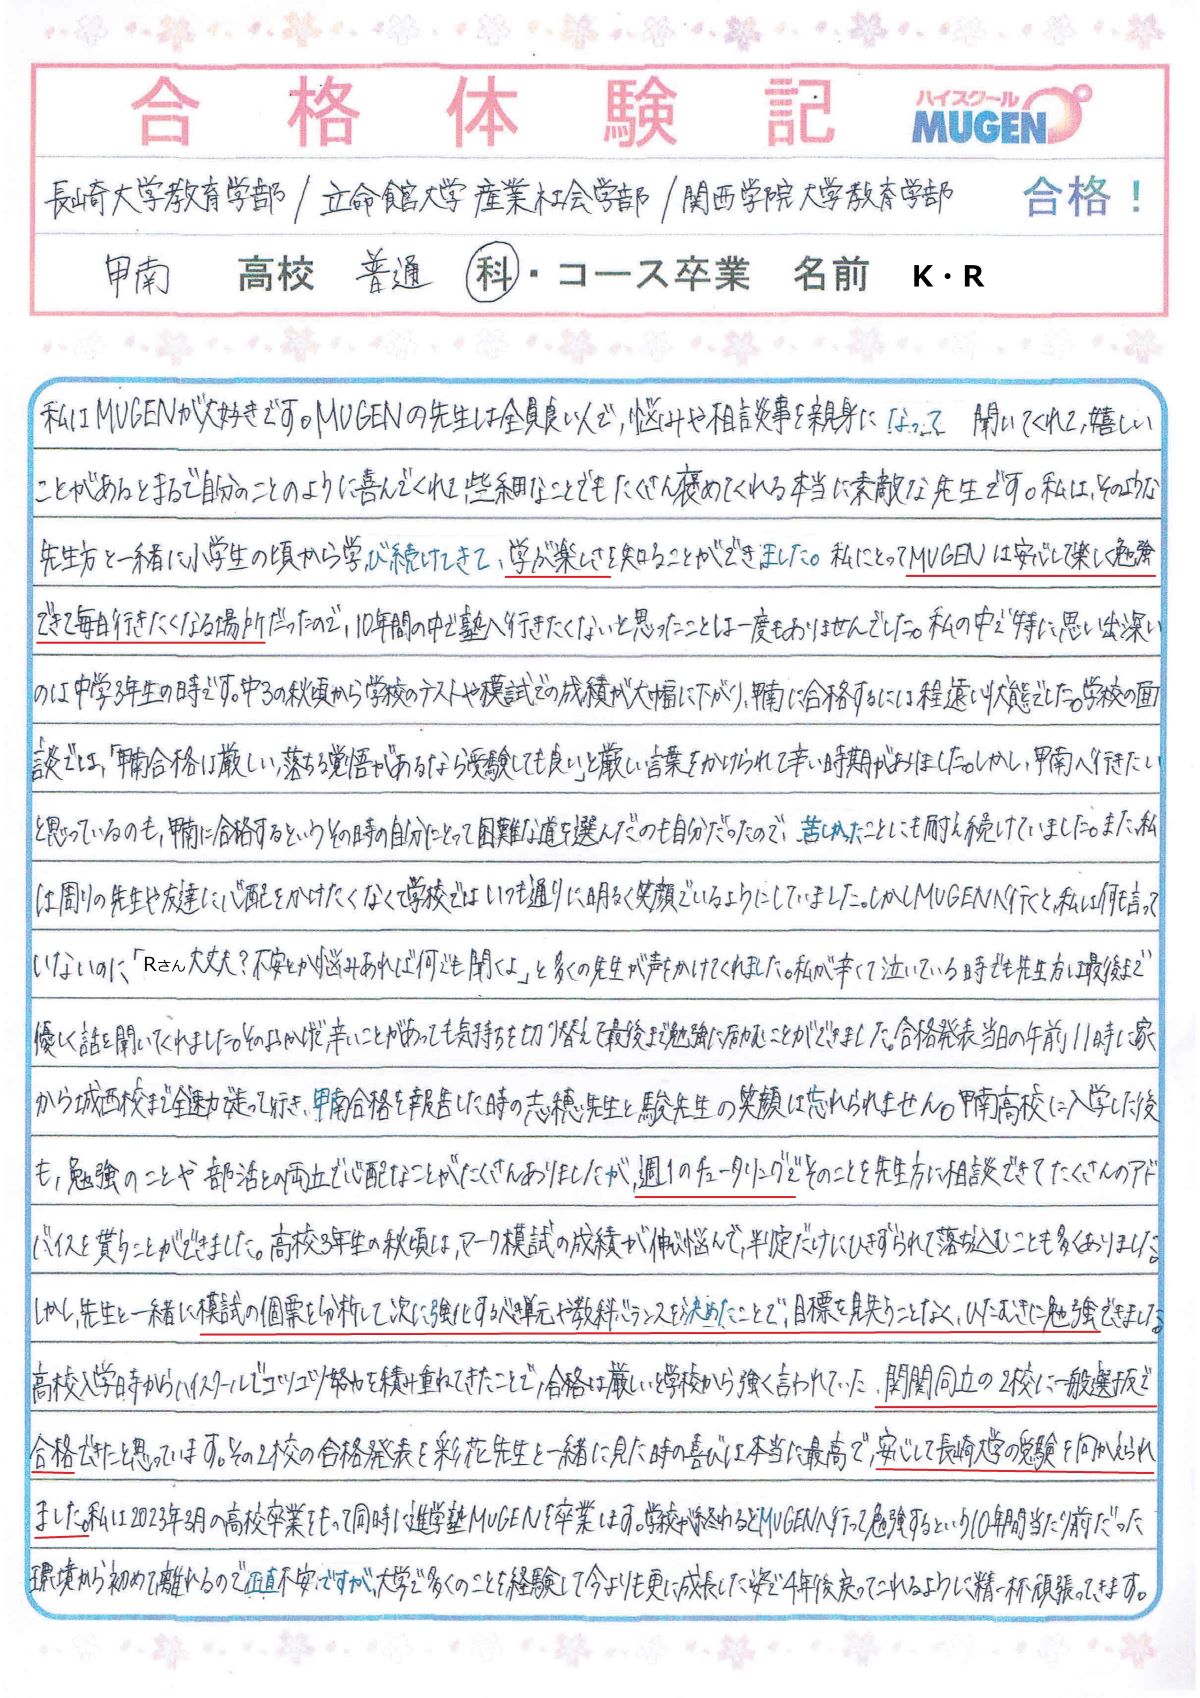 合格体験記
ハイスクール
MUGEN
長崎大学教育学部/立命館大学 産業社会学部/関西学院大学教育学部 合格！
甲南 高校 普通 科・コース卒業 名前 K・R
私はMUGENが大好きです。MUGENの先生は全員良い人で、悩みや相談事を親身になって 聞いてくれて、嬉しい
ことがあるとまるで自分のことのように喜んでくれて、些細なことでもたくさん褒めてくれる本当に素敵な先生です。私は、そのような
先生方と一緒に小学生の頃から学び続けてきて、学ぶ楽しさを知ることができました。私にとってMUGENは安心して楽しく勉強
できて毎日行きたくなる場所だったので、10年間の中で塾へ行きたくないと思ったことは一度もありませんでした。私の中で特に思い出深い
のは中学3年生の時です。中3の秋頃から学校のテストや模試での成績が大幅に下がり、甲南に合格するには程遠い状態でした。学校の面
談では、「甲南合格は厳しい、落ちる覚悟があるなら受験しても良い」と厳しい言葉をかけられて辛い時期がありました。しかし、甲南へ行きたい
と思っているのも、甲南に合格するというその時の自分にとって困難な道を選んだのも自分だったので、苦しかったことにも耐え続けていました。また、私
は周りの先生や友達に心配をかけたくなくて学校ではいつも通りに明るく笑顔でいるようにしていました。しかしMUGENへ行くと、私は何も言って
いないのに、「Rさん大丈夫？不安とか悩みあれば何でも聞くよ」と多くの先生が声をかけてくれました。私が辛くて泣いている時でも先生方は最後まで
優しく話を聞いてくれました。そのおかげで、辛いことがあっても気持ちを切り替えて最後まで勉強に励むことができました。合格発表当日の午前11時に家
から城西校まで全速力で走って行き、甲南合格を報告した時の志穂先生と駿先生の笑顔は忘れられません。甲南高校に入学した後
も、勉強のことや部活との両立で心配なことがたくさんありましたが、週1のチュータリングでそのことを先生方に相談できてたくさんのアド
バイスを貰うことができました。高校3年生の秋頃は、マーク模試の成績が伸び悩んで、判定だけにひきずられて落ち込むことも多くありました。
しかし、先生と一緒に模試の個票を分析して次に強化するべき単元や教科バランスを決めたことで、目標を見失うことなく、ひたむきに勉強できました。
高校入学時からハイスクールでコツコツ努力を積み重ねてきたことで、合格は厳しいと学校から強く言われていた、関関同立の2校に一般選抜で
合格できたと思っています。その2校の合格発表を彩花先生と一緒に見た時の喜びは本当に最高で、安心して長崎大学の受験を向かえられ
ました。私は2023年3月の高校卒業をもって同時に進学塾MUGENを卒業します。学校が終わるとMUGENへ行って勉強するという10年間当たり前だった
環境から初めて離れるので正直不安ですが、大学で多くのことを経験して今よりも更に成長した姿で4年後戻ってこれるように精一杯頑張ってきます。